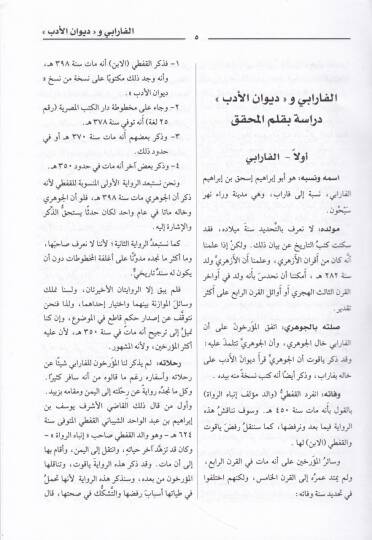 الفارابي و « ديوان الأدب »
٥
الفارابي و « ديوان الأدب »
دراسة بقلم المحقق
أولاً – الفارابي
اسمه ونسبه: هو أبو إبراهيم إسحق بن إبراهيم
الفارابي، نسبة إلى فاراب، وهي مدينة وراء نهر
سَيْحُون.
مولده: لا نعرف بالتَّحديد سنة ميلاده، فقد
سكتت كتبُ التاريخ عن بيان ذلك. ولكنْ إذا علمنا
أنَّه كان من أقران الأزهريّ، وعلمنا أن الأزهريَّ ولد
سنة ٢٨٢ هـ، أمكننا أن نحدسَ بأنه ولد في أواخر
القرن الثالث الهجري أو أوائل القرن الرابع على أكثر
تقدير.
صلته بالجوهري: اتفق المؤرخون على أن
الفارابي خال الجوهري، وأن الجوهريَّ تتلمذ عليه:
وقد ذكر ياقوت أن الجوهريَّ قرأ ديوانَ الأدب على
خاله بفاراب، وذكر أيضًا أنه كتب نسخة منه بيده .
وفاته: انفرد القفطيُّ (والد مؤلف إنباه الرواة)
بالقول بأنه مات سنة ٤٥٠ هـ. وسوف نناقشُ هذه
الرواية فيما بعد ونرفضها، كما سنتقلُ رفضَ ياقوت
والقفطي (الابن) لها .
وسائرُ المؤرخين على أنه مات في القرن الرابع،
ولم يمتد عمرُه إلى القرن الخامس، ولكنهم اختلفوا
في تحديد سنة وفاته:
١- فذكر القفطي (الابن) أنه مات سنة ٣٩٨ هـ،
وأنه وجد ذلك مكتوبًا على نسخة من نسخ «
ديوان الأدب ».
٢- وجاء على مخطوطة دار الكتب المصرية (رقم
٢٥ لغة) أنه توفي سنة ٣٧٨ هـ.
٣- وذكر بعضهم أنه مات سنة ٣٧٠ هـ أو في
حدود ذلك.
٤- وذكر بعض آخر أنه مات في حدود ٣٥٠ هـ.
ونحن نستبعد الرواية الأولى المنسوبة للقفطي لأنه
ذكر أن الجوهري مات سنة ٣٩٨ هـ، فلو أن الجوهري
وخاله ماتا في عام واحد لكان حدثًا يستحقُّ الذكر
والإشارة إليه.
كما نستبعدُ الرواية الثانية؛ لأننا لا نعرف صاحبَها،
وما أكثر ما نجده مدوَّنًا على أغلفة المخطوطات دون أن
يكون له سندٌ تاريخيٌّ.
فلم يبق إلا الروايتان الأخيرتان، ولسنا نملك
وسائلَ الموازنة بينهما واختيار إحداهما، ولذا فنحن
نتوقَّف عن إصدار حكم قاطع في الموضوع، وإن كنا
نميلُ إلى ترجيح أنه مات في سنة ٣٥٠ هـ، لأن عليه
أكثر المؤرخين، ولأنه المشهور.
رحلاته: لم يذكر لنا المؤرخون للفارابي شيئًا عن
رحلاته وأسفاره رغم ما قالوه من أنه سافر كثيرًا.
وكل ما نجدُه روايةً عن رحلته إلى اليمن ومقامه بزبيد.
وأول من قال ذلك القاضي الأشرف يوسف بن
إبراهيم بن عبد الواحد الشيباني القفطي المتوفى سنة
٦٢٤ هـ – وهو والد القفطي صاحب « إنباه الرواة » –
وكان قد تزهَّد آخر حياته، وانتقل إلى اليمن، وأقام بها
إلى أن مات. وقد ذكر هذه الرواية ياقوت، وتناقلها
المؤرخون من بعده، وسنذكر هذه الرواية لأنها تحملُ
في طياتها أسبابَ رفضها والتَّشكُّك في صحتها، قال